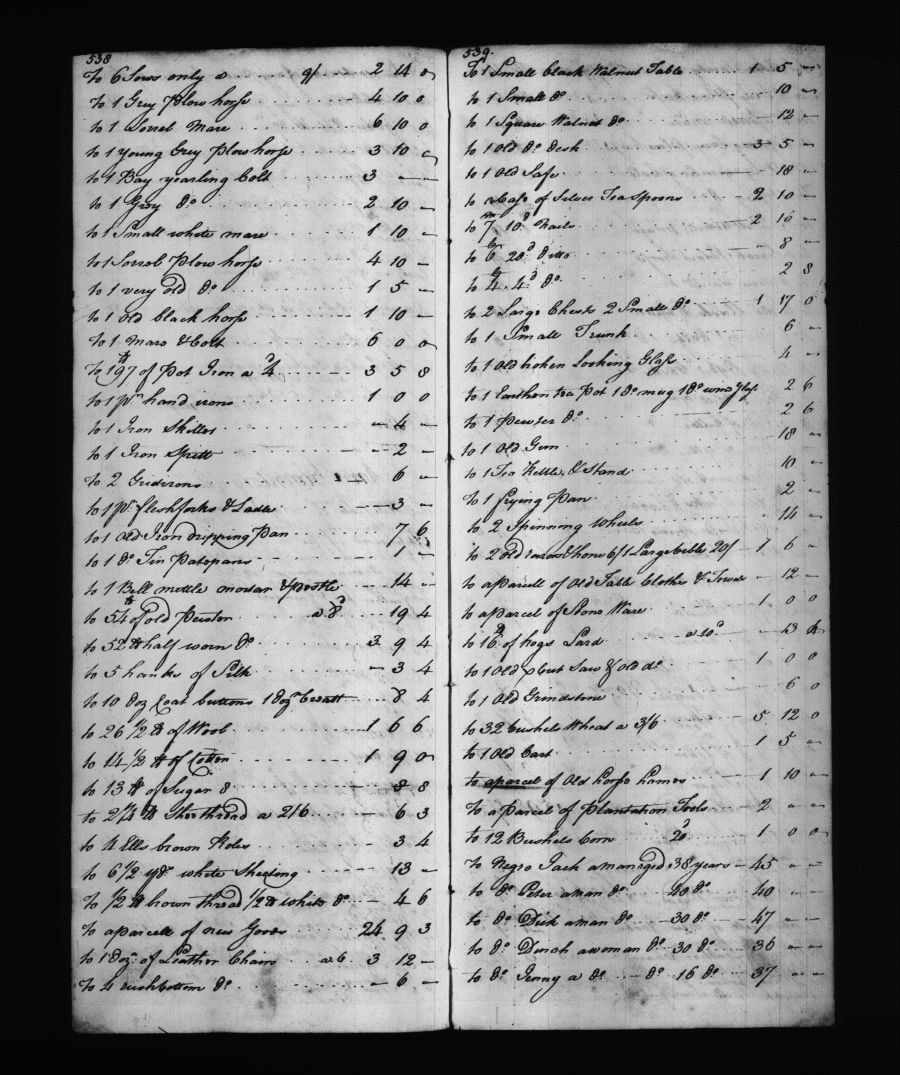 538
To 6 Sows only a 9/ 2 14 0
to 1 Grey Plow horse 4 10 0
to 1 Sorrel Mare 6 10 0
to 1 young Grey plow horse 3 10 0
to 1 Bay yearling Colt 3 — —
to 1 Grey Do. 2 10 —
to 1 Small white mare 1 10 —
to 1 Sorrel Plow horse 4 10 —
to 1 very old Do. 1 5 —
to 1 old black horse 1 10 —
to 1 Mare & Colt 6 0 0
to 197 lb of Pot Iron a 4d 3 5 8
to 1 pr. hand irons 1 0 0
to 1 Iron Skillet — 4 —
to 1 Iron Spitt — 2 —
to 2 Gridirons 6 —
to 1 pr. fleshforks & Ladle — 3 —
to 1 old Iron dripping Pan 7 6
to 1 Do. Tin Patepans 1 —
to 1 Bell mettle mortar & pestle — 14 —
to 54 lb of old Pewter a 8d 19 4
to 52 lb half worn Do. 3 9 4
to 5 hanks of Silk — 3 4
to 10 doz Coat buttons 1 doz Breast 8 4
to 26 1/2 lb of Wool 1 6 6
to 14 1/2 lb of Cotton 1 9 0
to 13 lb of Sugar 8 — 8 8
to 2 1/4 lb Shoethread a 2/6 — 6 3
to 4 Ells brown Roles 3 4
to 6 1/2 yds white Sheeting — 13 —
To 1/2 lb brown thread 1/2 lb white Do. — 4 6
To a parcell of new Goods 24 9 3
to 1 Doz. of Leather Chairs a 6 3 12 —
To 4 rush bottom Do. — 6 —
539.
To 1 Small black Walnut Table 1 5 —
to 1 Small Do. 10 —
to 1 Square Walnut Do. — 12 —
to 1 old Do. desk 3 5 —
to 1 Old Safe — 18 —
to a Case of Silver Tea Spoons 2 10 —
to 7 10d Nails — 2 16 —
to 6 20d Ditto — 8 —
to 4 4d Do. 2 8
to 2 Large Chests 2 Small Do. 1 17 0
to 1 Small Trunk 6 —
to 1 Old broken Looking Glass 4 —
to 1 Earthen tea Pot 1 Do. mug 1 Do. wine Glass 2 6
to 1 pewter Do. 2 6
to 1 Old Gun 18 —
to 1 Tea Kettle & Stand 10 —
to 1 frying Pan 2 —
to 2 Spinning wheels 14 —
to 2 old razors & hone 6/ 1 Large bible 20/ — 1 6 —
to a parcell of Old Table Cloths & Towels — 12 —
to a parcel of Stone Ware 1 0 0
to 16 lb of hogs Lard a 10d — 13
to 1 Old x Cut Saw & old do. 1 0 0
to 1 Old Grindstone 6 0
to 32 bushels Wheat a 3/6 5 12 0
to 1 Old Cart 1 5 —
to a parcel of Old horse hames 1 10 —
To a Parcel of Plantation Tools 2 — —
to 12 Bushels Corn 20d 1 0 0
To Negro Jack a man aged 38 years — 45 — —
to Do. Peter a man Do. 40 Do. 40 — —
to Do. Dick a man Do. 30 Do. 47 — —
to Do. Dinah a woman Do. 30 Do. 36 — —
to Do. Jenny a Do. Do. 16 Do. 37 — —